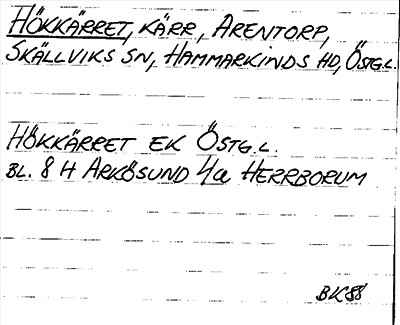 HÖKKÄRRET, KÄRR, ARENTORP,
SKÄLLVIKS SN, HAMMARKINDS HD, ÖSTG.L.
HÖKKÄRRET EK ÖSTG.L.
BL. 8 H ARKÖSUND 4a HERRBORUM
BK88